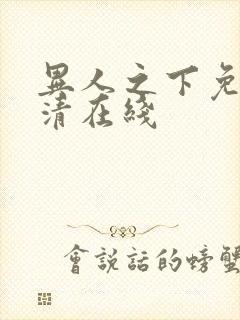 異人之下免
清在綫
會說話的螃蟹